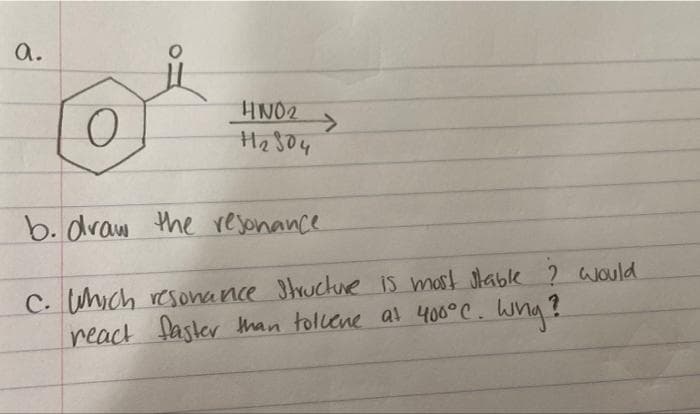 a.
O
O
HNO2
H2SO4
b. draw the resonance
c. Which resonance structure is most stable ? would
react faster than tolcene at 400°C. Why?